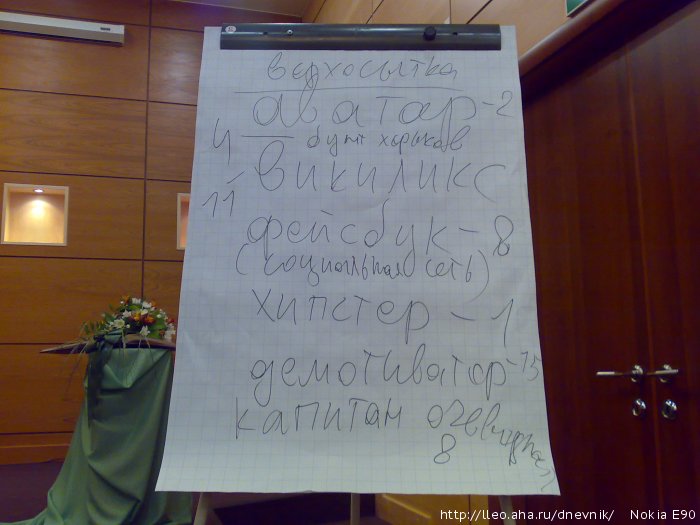 верхосытка
аватар - 2
4 — бунт хорьков
11 - викиликс
фейсбук - 8
(социальная сеть)
хипстер - 1
демотиватор - 15
капитан очевидная
8
http://lleo.aha.ru/dnevnik/ Nokia E90